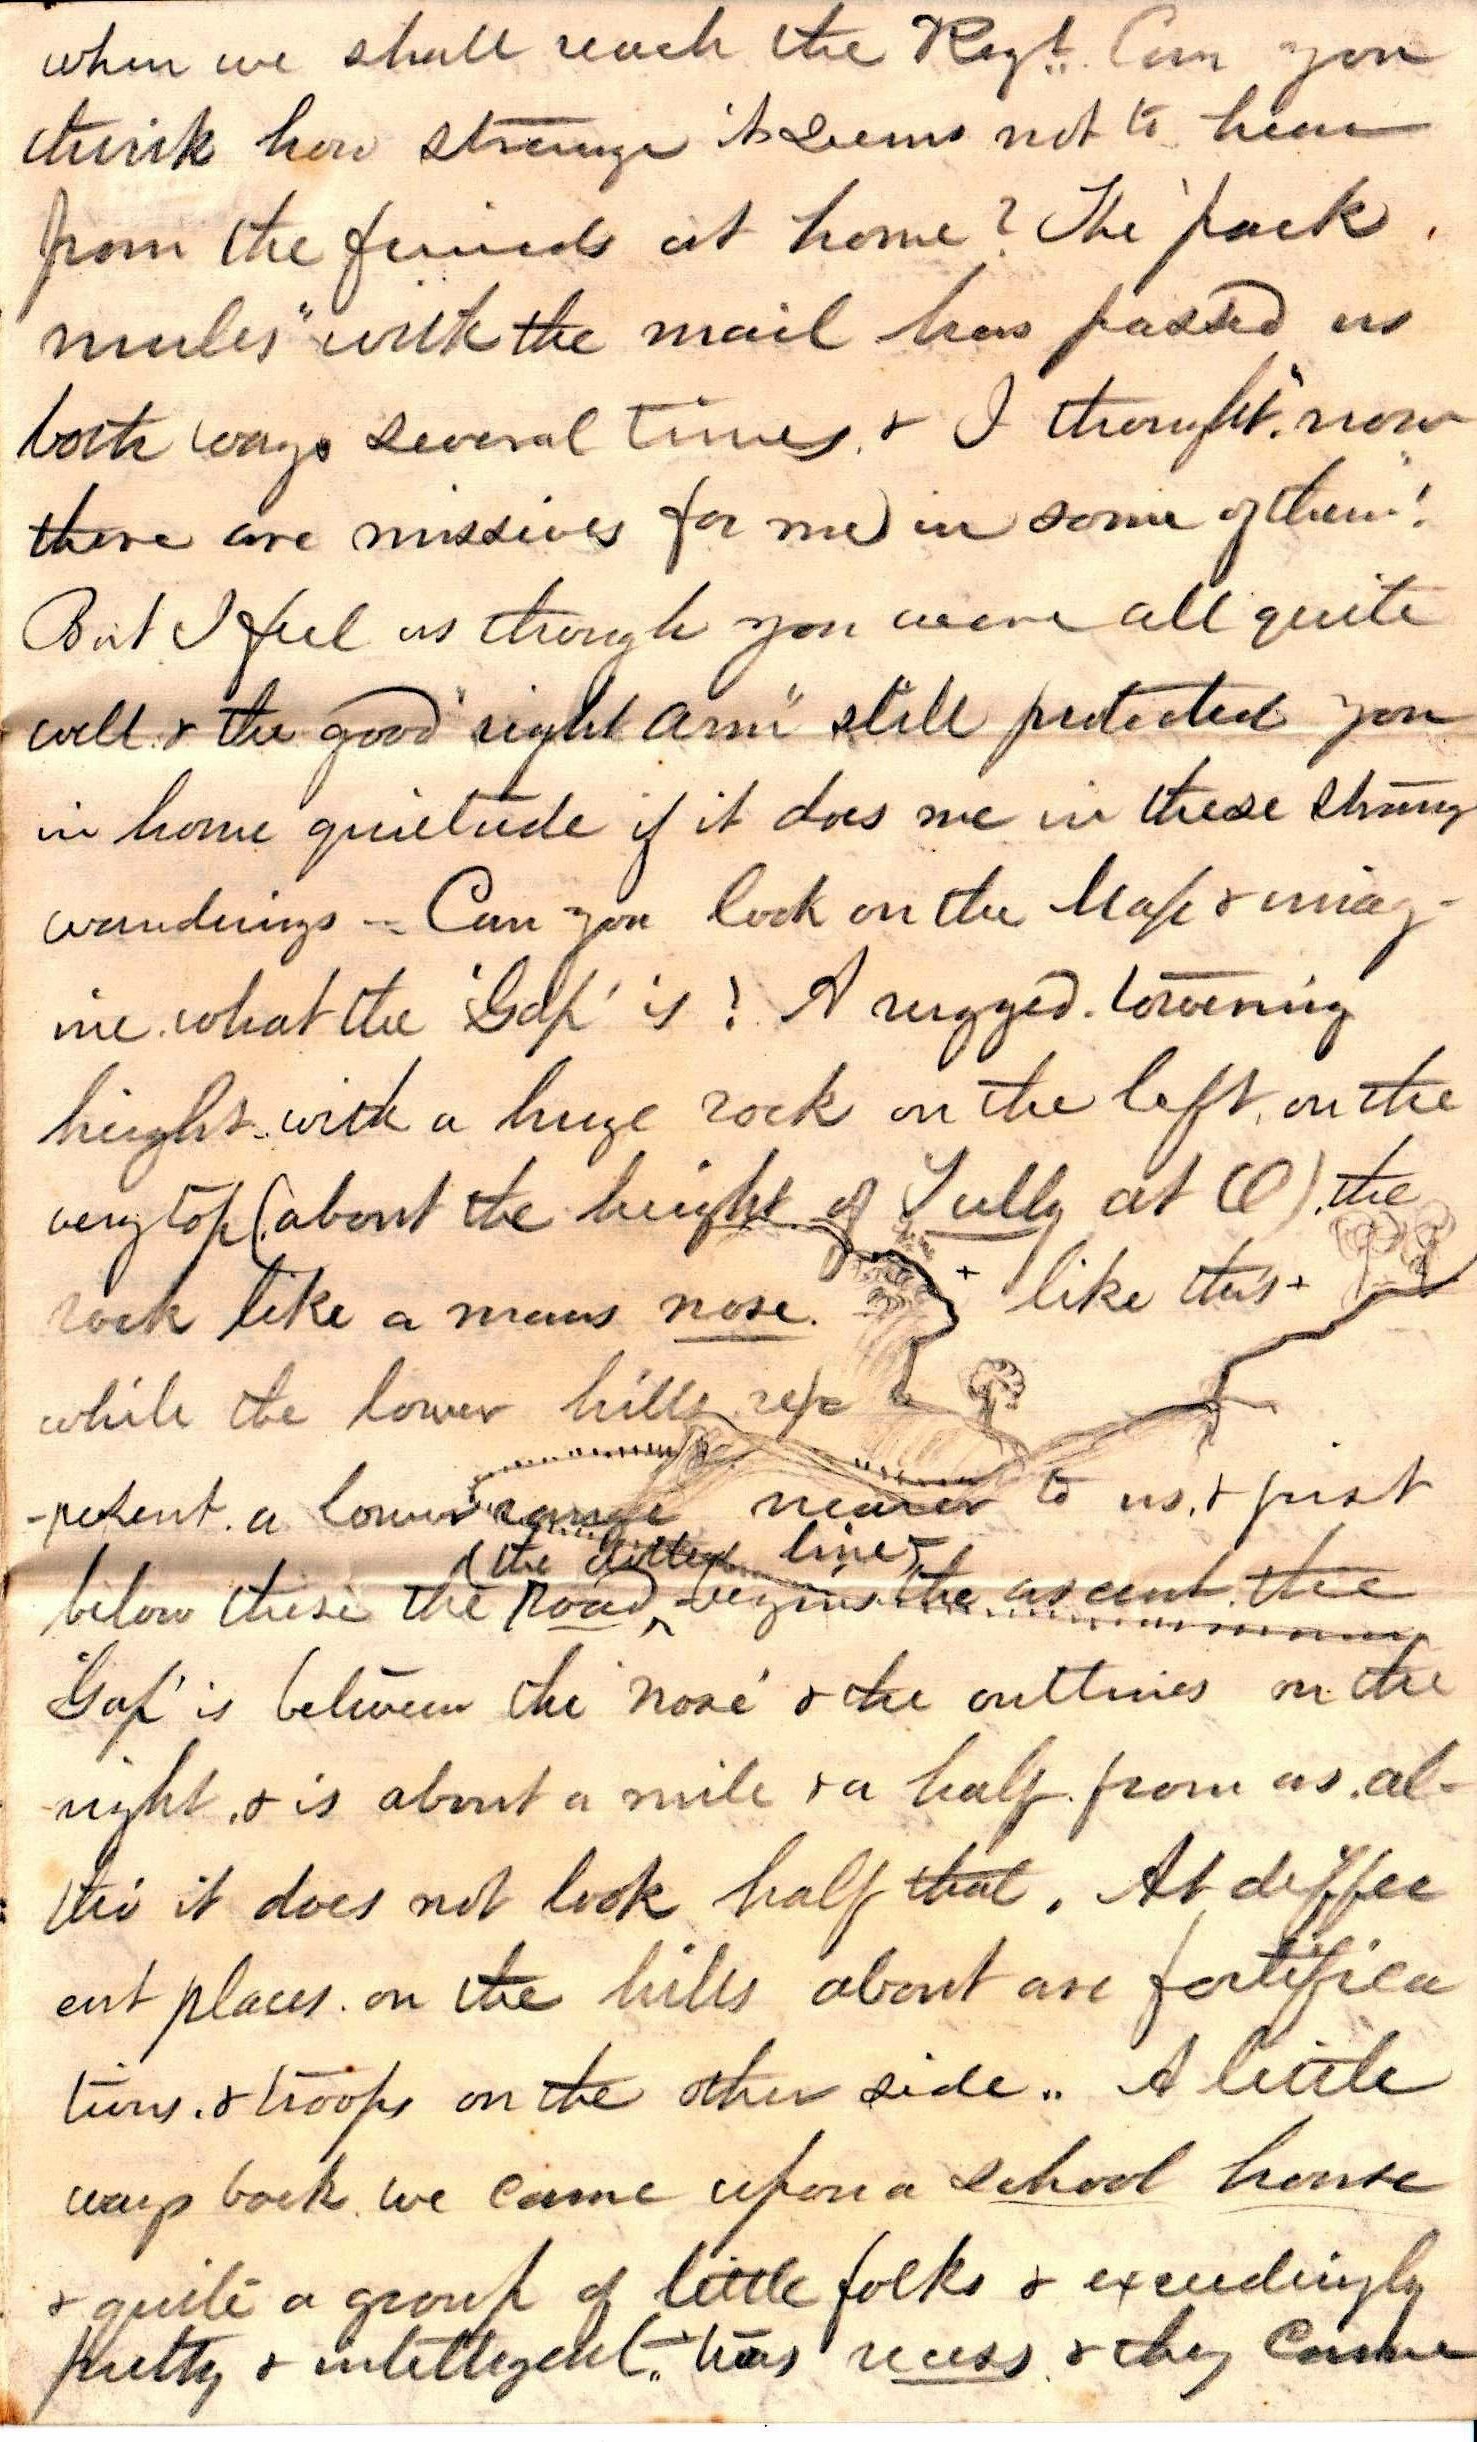 when we shall reach the Regt. Can you
think how strange it seems not to hear
from the friends at home? The 'pack
mules" with the mail has passed us
both ways several times. & I thought. "now
there are missives for me in some of them"!
But I feel as though you were all quite
well & the good "right arm" still protected you
in home quietude if it does me in these strang
wanderings - Can you look on the Map & imag-
ine. what the 'Gap' is! A rugged. towering
height. with a huge rock on the left, on the
very top (about the height of Tully at ). the
rock like a mans nose. + like this +
while the lower hills rep
-resent. a lower range nearer to us, & just
(the dotted line)
below these the road ^ begins the ascent. the
'Gap' is between the 'nose' & the outlines on the
right, & is about a mile & a half. from us. al-
tho' it does not look half that. At differ
ent places. on the hills about are fortifica
tions. & troops on the other side.. A little
ways back we came upon a school house
& quite a group of little folks & exceedingly
pretty & intellegent.. twas recess & they came